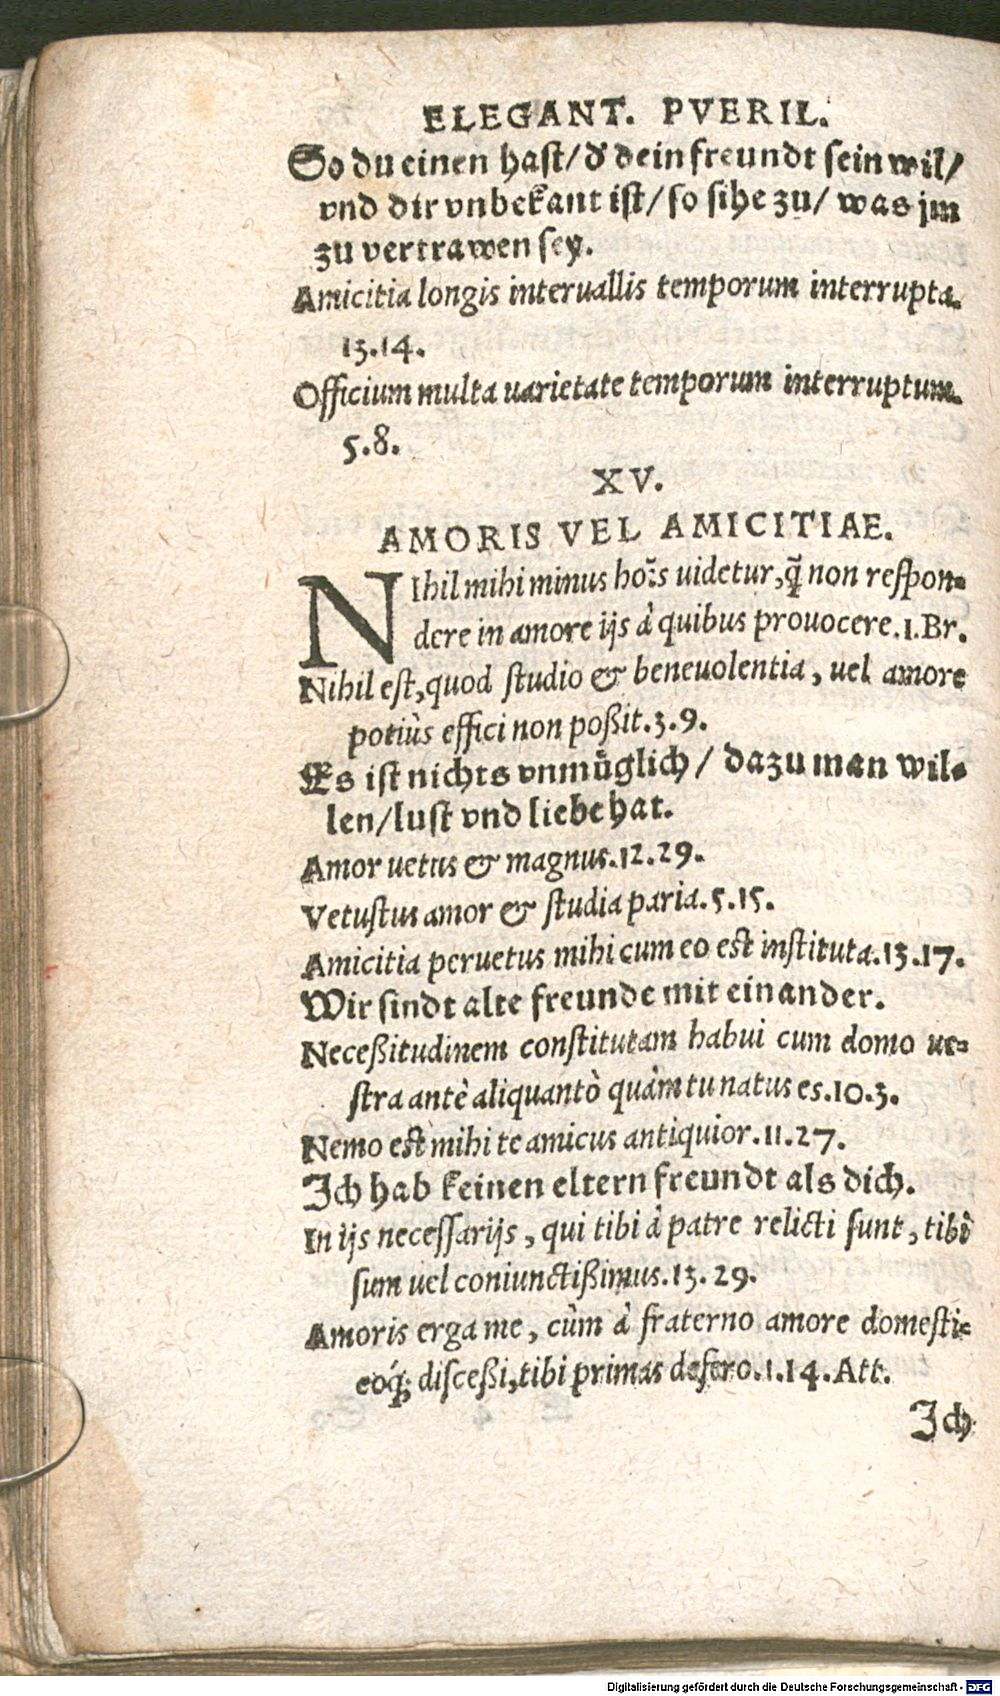 ELEGANT. PVERIL.
So du einen hast/ d' dein freundt sein wil/
vnd dir vnbekant ist/ so sihe zu/ was jm
zu vertrawen sey.
Amicitia longis interuallis temporum interrupta.
13.14.
Officium multa uarietate temporum interruptum.
5.8.
XV.
AMORIS VEL AMICITIAE.
NIhil mihi minus hoĩs uidetur, q̃ non respon-
dere in amore ijs à quibus prouocere. 1. Br.
Nihil est, quod studio & beneuolentia, uel amore
potiùs effici non poßit. 3.9.
Es ist nichts vnmüglich/ dazu man wil-
len/ lust vnd liebe hat.
Amor uetus & magnus. 12.29.
Vetustus amor & studia paria. 5.15.
Amicitia peruetus mihi cum eo est instituta. 13.17.
Wir sindt alte freunde mit einander.
Neceßitudinem constitutam habui cum domo ue-
stra antè aliquantò quàm tu natus es. 10.3.
Nemo est mihi te amicus antiquior. 11.27.
Ich hab keinen eltern freundt als dich.
In ijs necessarijs, qui tibi à patre relicti sunt, tibi
sum uel coniunctißimus. 13.29.
Amoris erga me, cùm à fraterno amore domesti-
coq́; disceßi, tibi primas defero. 1.14. Att.
Ich
Digitalisierung gefördert durch die Deutsche Forschungsgemeinschaft - DFG